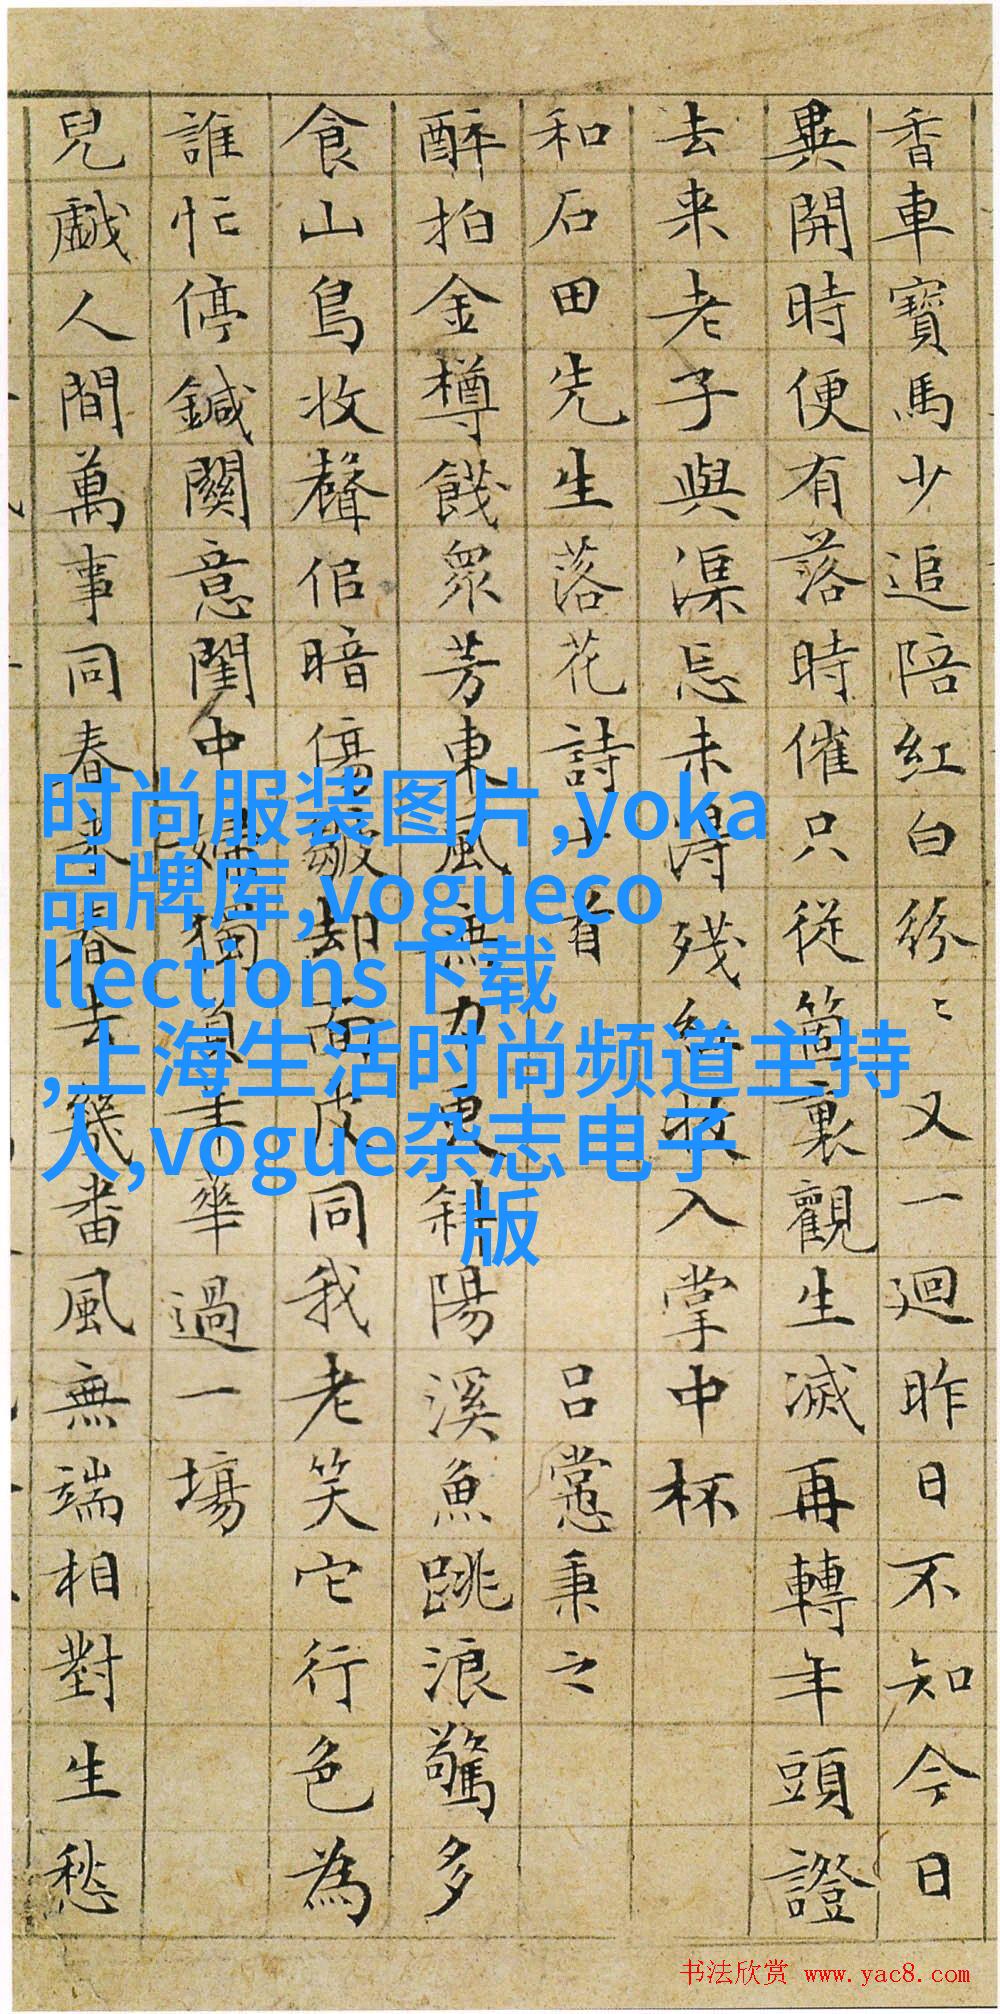 香車寶馬少追陪紅白紛〻又一迴昨日不知今日
異開時便有落時催只從箇裏觀生滅再轉年頭證
去来老子與渠忘未得殘紅收入掌中杯
和石田先生落花詩十首 吕㦂秉之
醉拍金樽餞眾芳東風無力更斜陽溪魚跳浪驚多
食山鳥收聲倍暗傷皺却面皮同我老笑它行色為
誰忙停鍼關意閨中婦獨負年華過一場
兒戲人間萬事同春来春去幾番風無端相對生愁
时尚服装图片,yoka
品牌库,vogueco
llections下载
,上海生活时尚频道主持
人,vogue杂志电子
版
书法欣赏 www.yac8.com